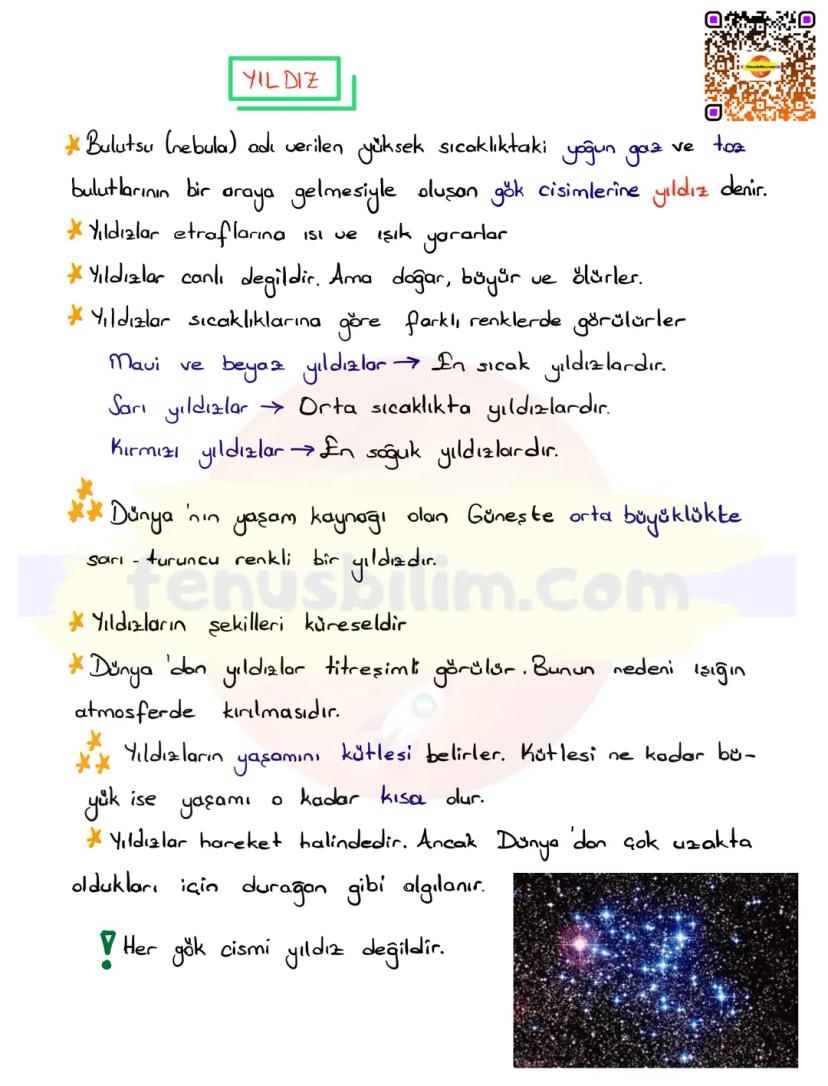 YILDIZ
Bulutsu (nebula) adı verilen yüksek sıcaklıktaki yoğun gaz ve toz
bulutlarının bir araya gelmesiyle oluşan gök cisimlerine yıldız denir.
Yıldızlar etraflarına ısı ve ışık yararlar
Yıldızlar canlı degildir. Ama doğar, büyür ve ölürler.
Yıldızlar sıcaklıklarına göre farklı renklerde görülürler
Mavi ve beyaz yıldızlar → En sıcak yıldızlardır.
Sarı yıldızlar → Orta sıcaklıkta yıldızlardır.
Kırmızı yıldızlar → En soğuk yıldızlardır.
Dünya 'nın yaşam kaynağı olan Güneşte orta büyüklükte
sarı - turuncu renkli bir yıldızdır.
fenusbilim.com
Yıldızların şekilleri küreseldir
Dünya 'dan yıldızlar titreşimli görülür. Bunun nedeni ışığın
atmosferde kırılmasıdır.
Yıldızların yaşamını kütlesi belirler. Kütlesi ne kadar bü-
yük ise yaşamı o kadar kısa olur.
Yıldızlar hareket halindedir. Ancak Dünya 'dan çok uzakta
oldukları için durağan gibi algılanır.
! Her gök cismi yıldız değildir.